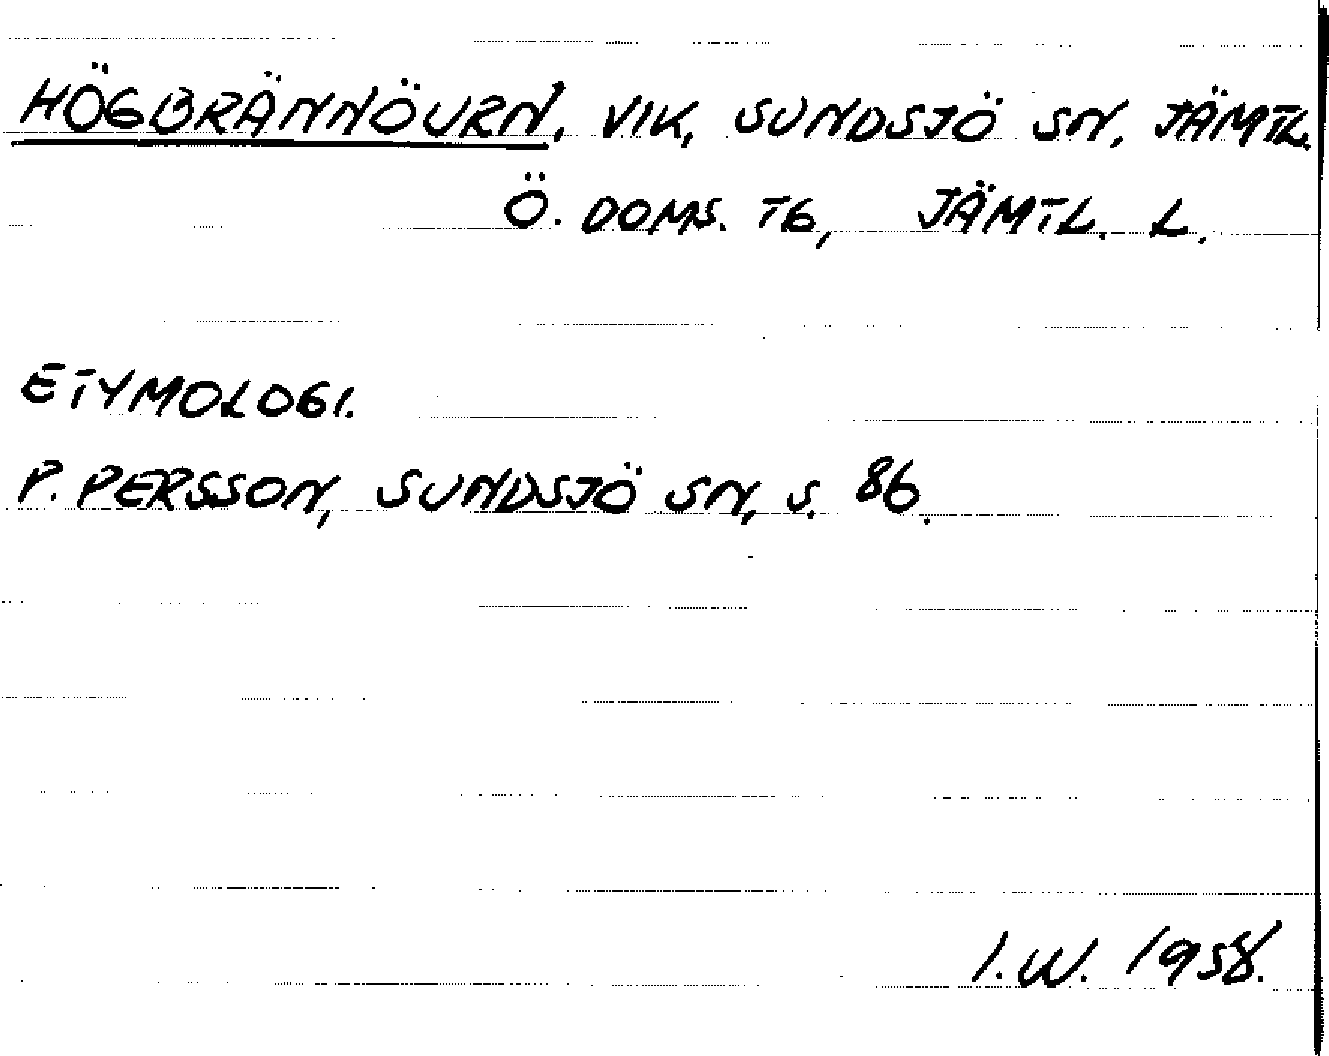 HÖGBRÄNNÖURN, VIK, SUNDSJÖ SN, JÄMTL.
Ö. DOMS. TG, JÄMTL. L.
ETYMOLOGI.
P. PERSSON, SUNDSJÖ SN, S. 86.
I.W. 1958.